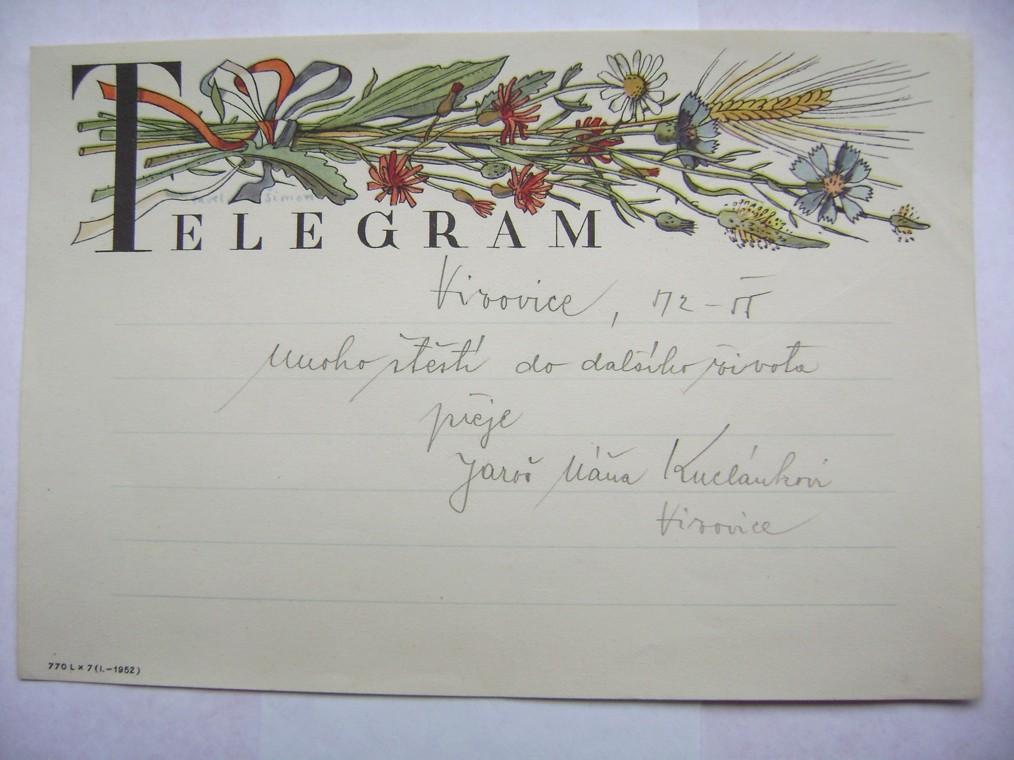 TELEGRAM
Pavel Šimon
Vizovice,
Mnoho štěstí do dalšího života
přeje
Jaroš Máňa Kuclánkovi
Vizovice
770 L × 7 (I.–1952)